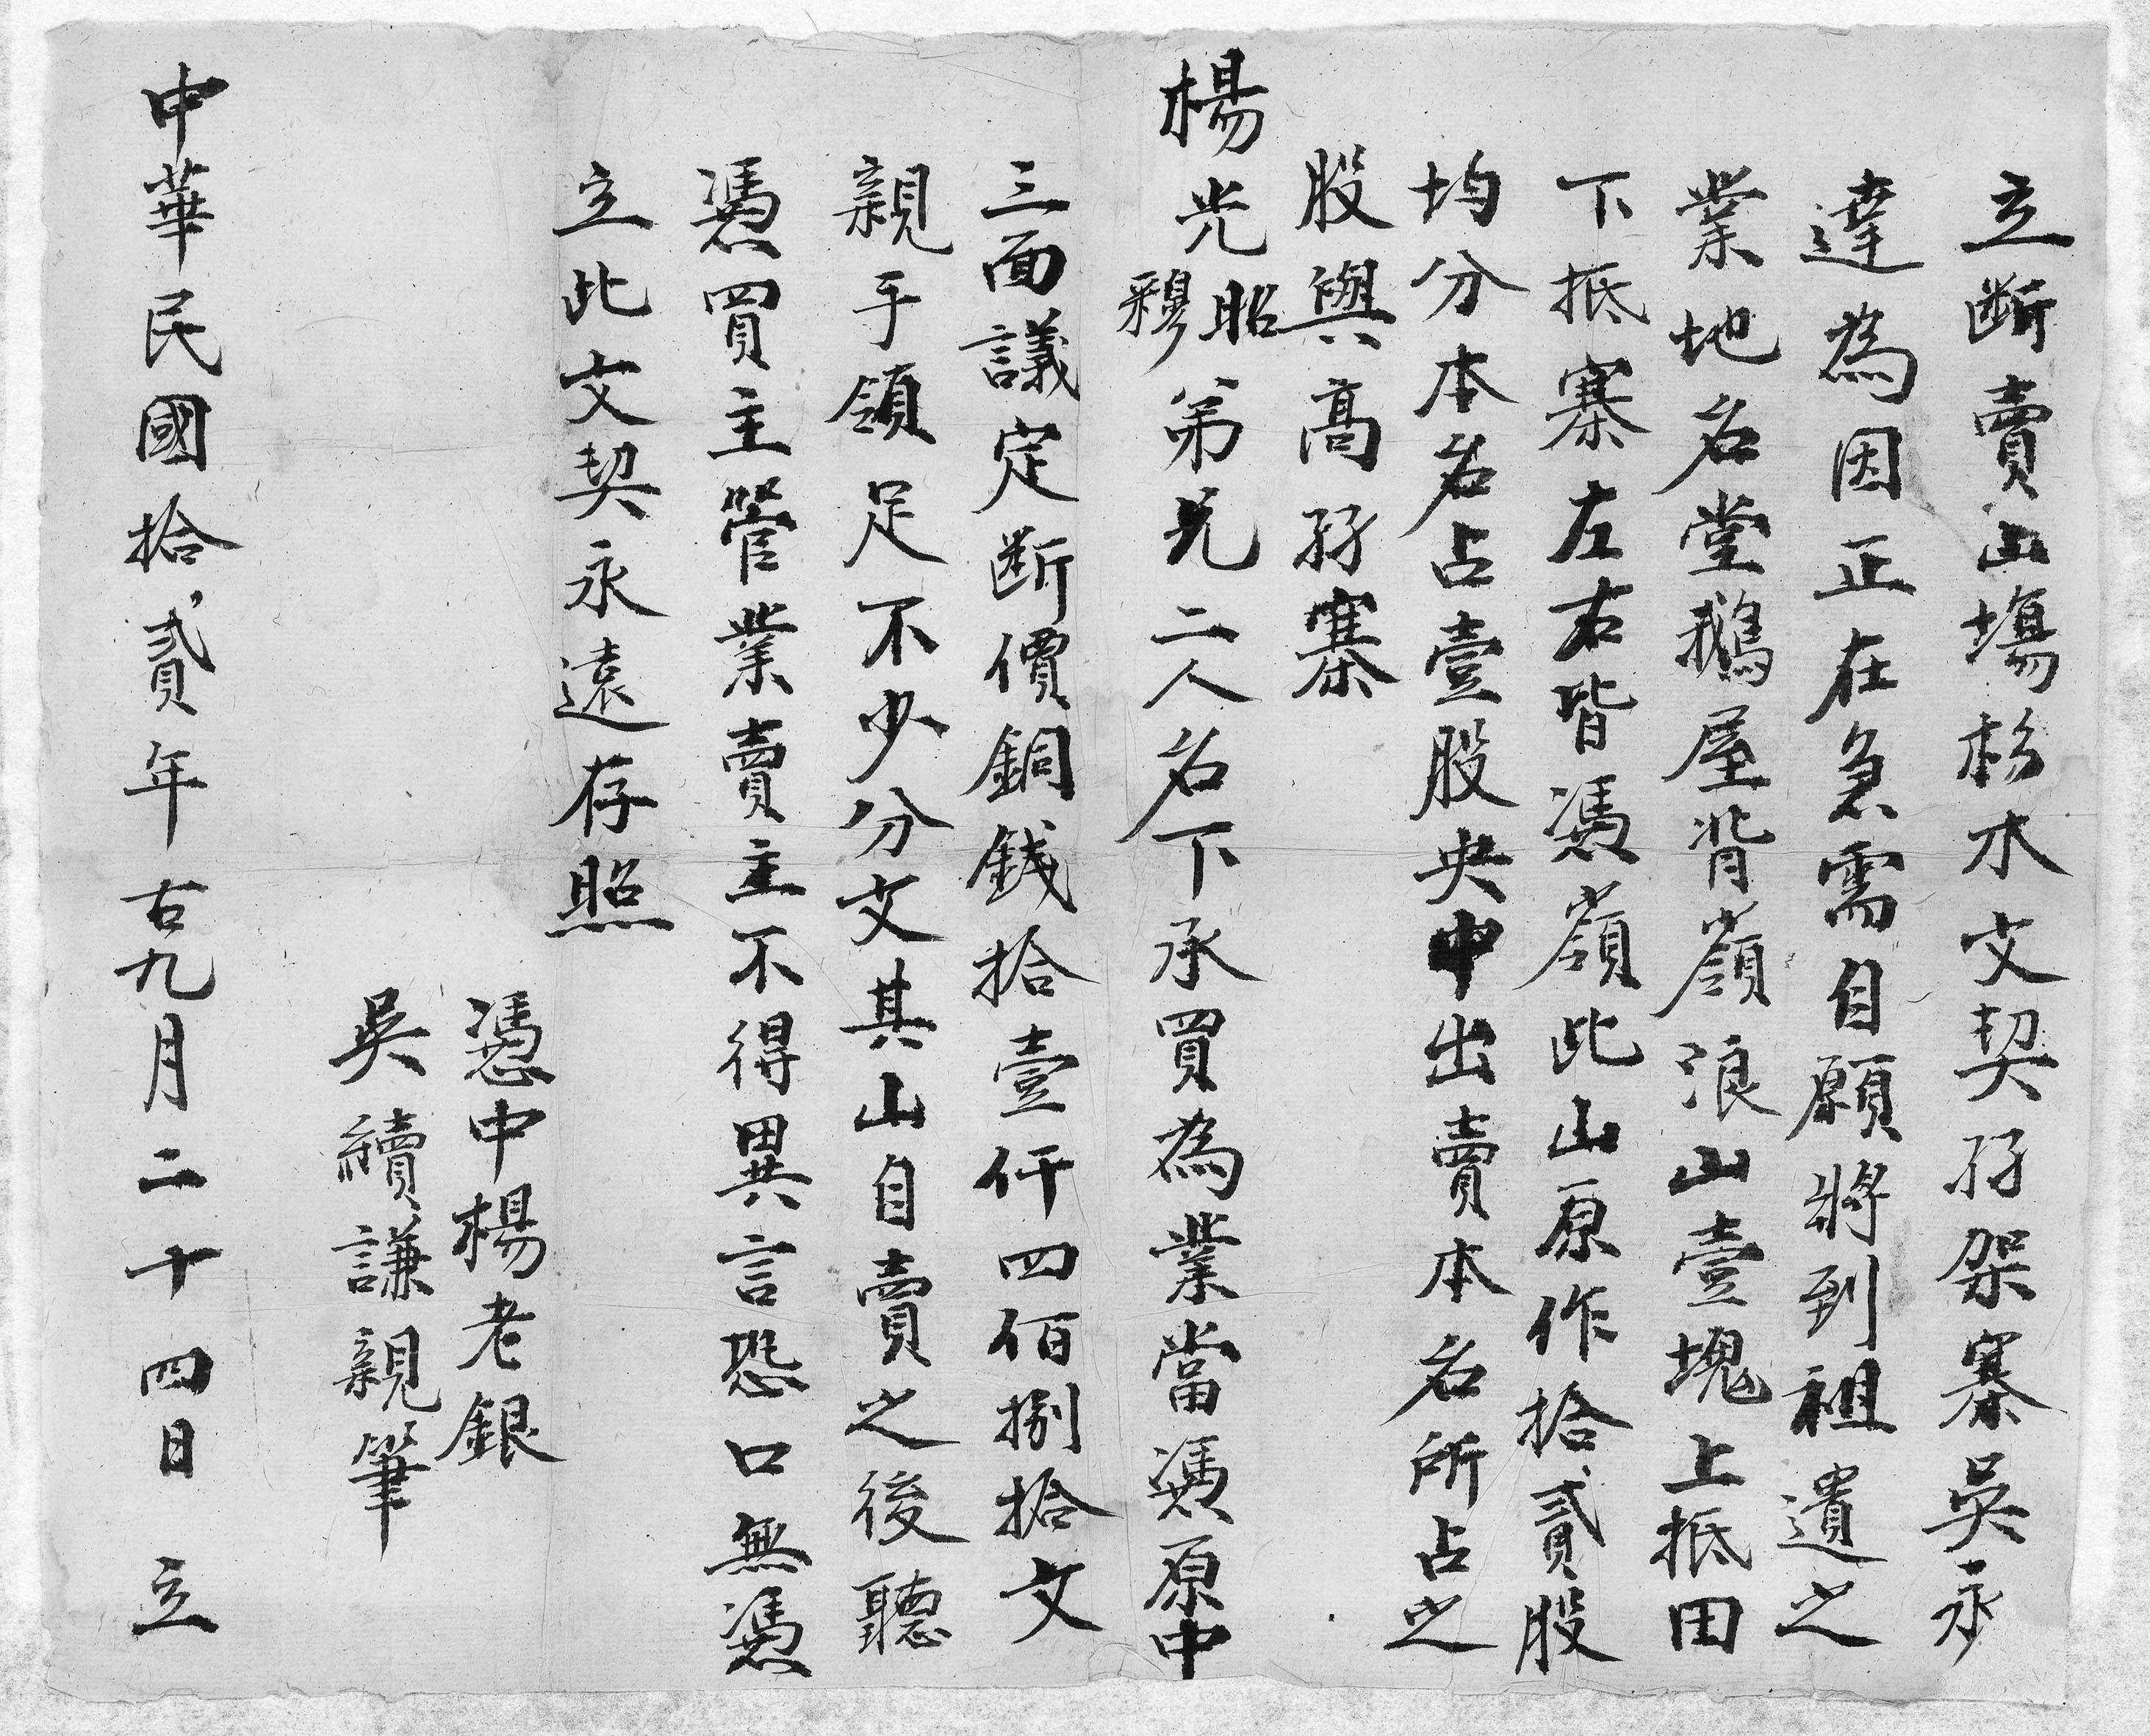 立断賣山塲杉木文契孖架寨吳永
達為因正在急需自願將到祖遺之
業地名堂鵝屋背嶺浪山壹塊上抵田
下抵寨左右皆憑嶺此山原作拾貳股
均分本名占壹股央中出賣本名所占之
股與高孖寨
楊光昭穆弟兄二人名下承買為業當憑原中
三面議定断價銅錢拾壹仟四佰捌拾文
親手領足不少分文其山自賣之後聽
憑買主管業賣主不得異言恐口無憑
立此文契永遠存照
憑中楊老銀
吳續謙親筆
中華民國拾貳年古九月二十四日立